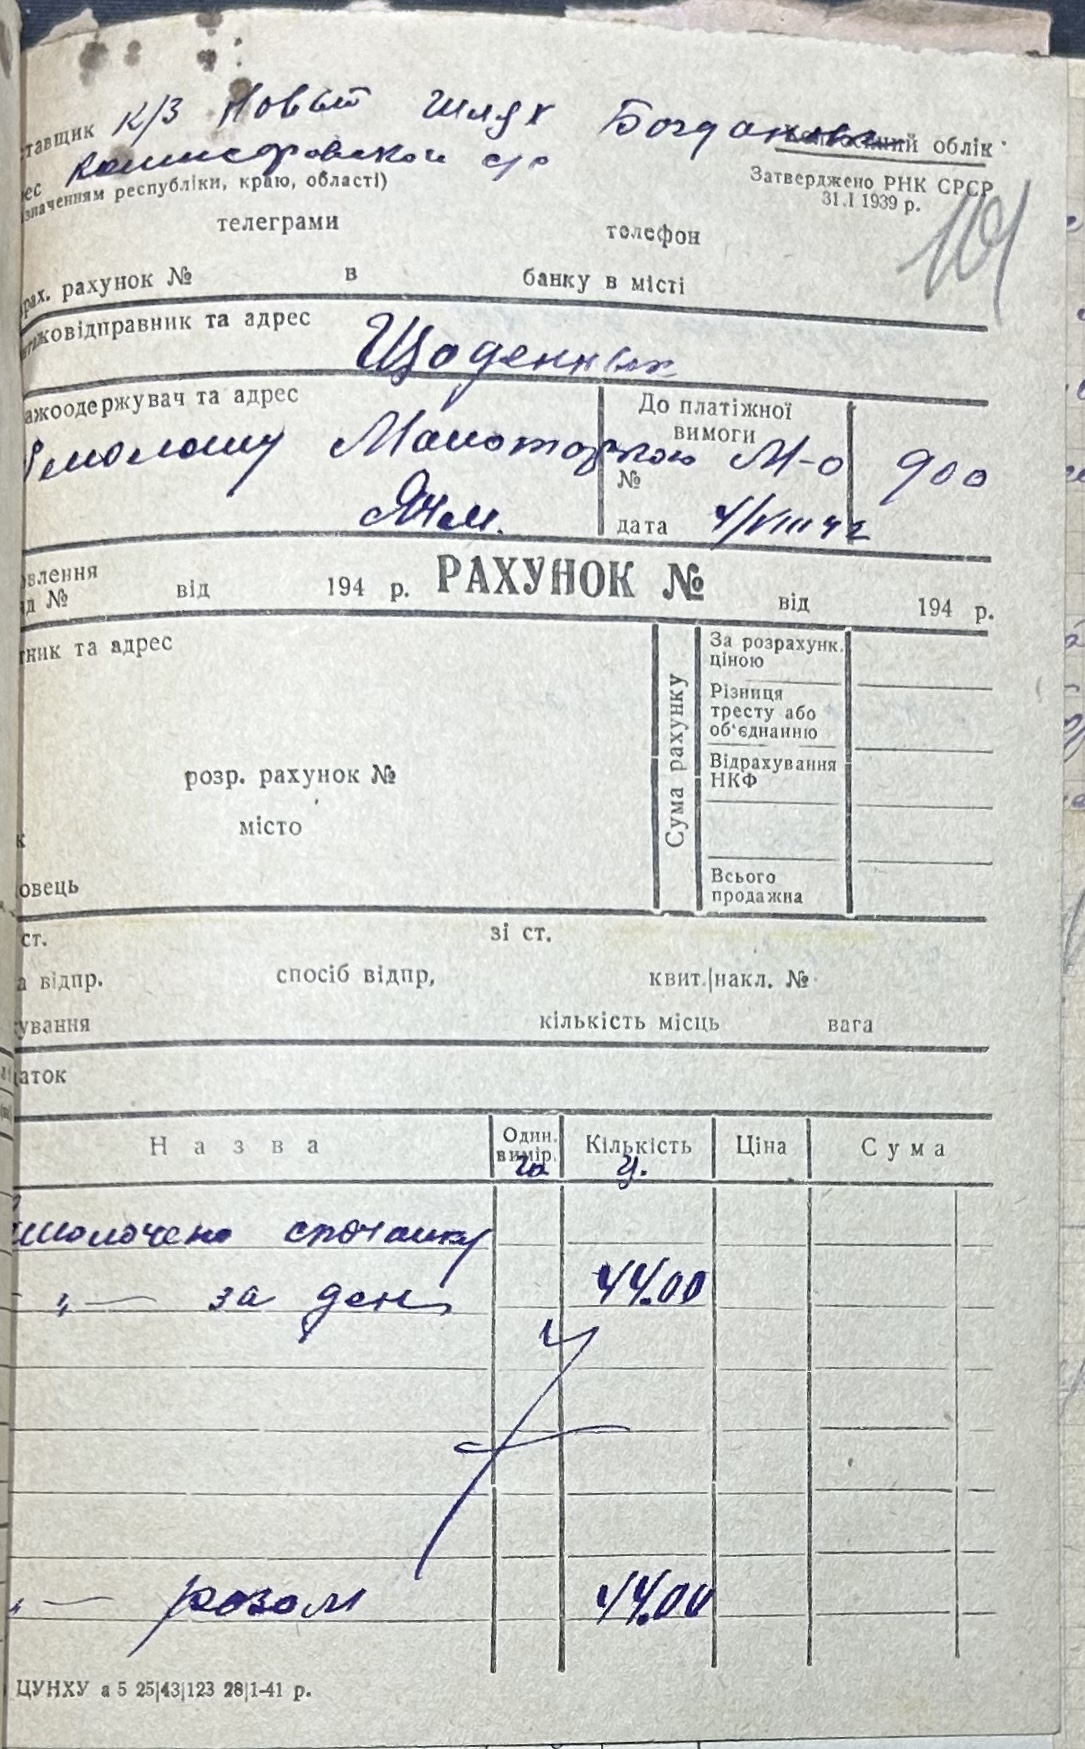 тавщик к/з Новый Шлях Богданова
ний облік
ес Комисаровской с/р
значенням республіки, краю, області)
Затверджено РНК СРСР
31.I 1939 р.
101
телеграми телефон
рах. рахунок № в банку в місті
тажовідправник та адрес
Щоденник
ажоодержувач та адрес
До платіжної
вимоги
№
М-о 900
Ячм.
дата 4/VIII 42
овлення
д № від 194 р. РАХУНОК № від 194 р.
тник та адрес
Сума рахунку
За розрахунк.
ціною
Різниця
тресту або
об'єднанню
Відрахування
НКФ
розр. рахунок №
місто
к
овець
Всього
продажна
ст. зі ст.
а відпр. спосіб відпр, квит.|накл. №
кування кількість місць вага
даток
Назва Один. вимір. Кількість Ціна Сума
га ц.
молочено спочатку
„— за день 44.00
„— розом 44.00
ЦУНХУ а 5 25|43|123 28|1-41 р.